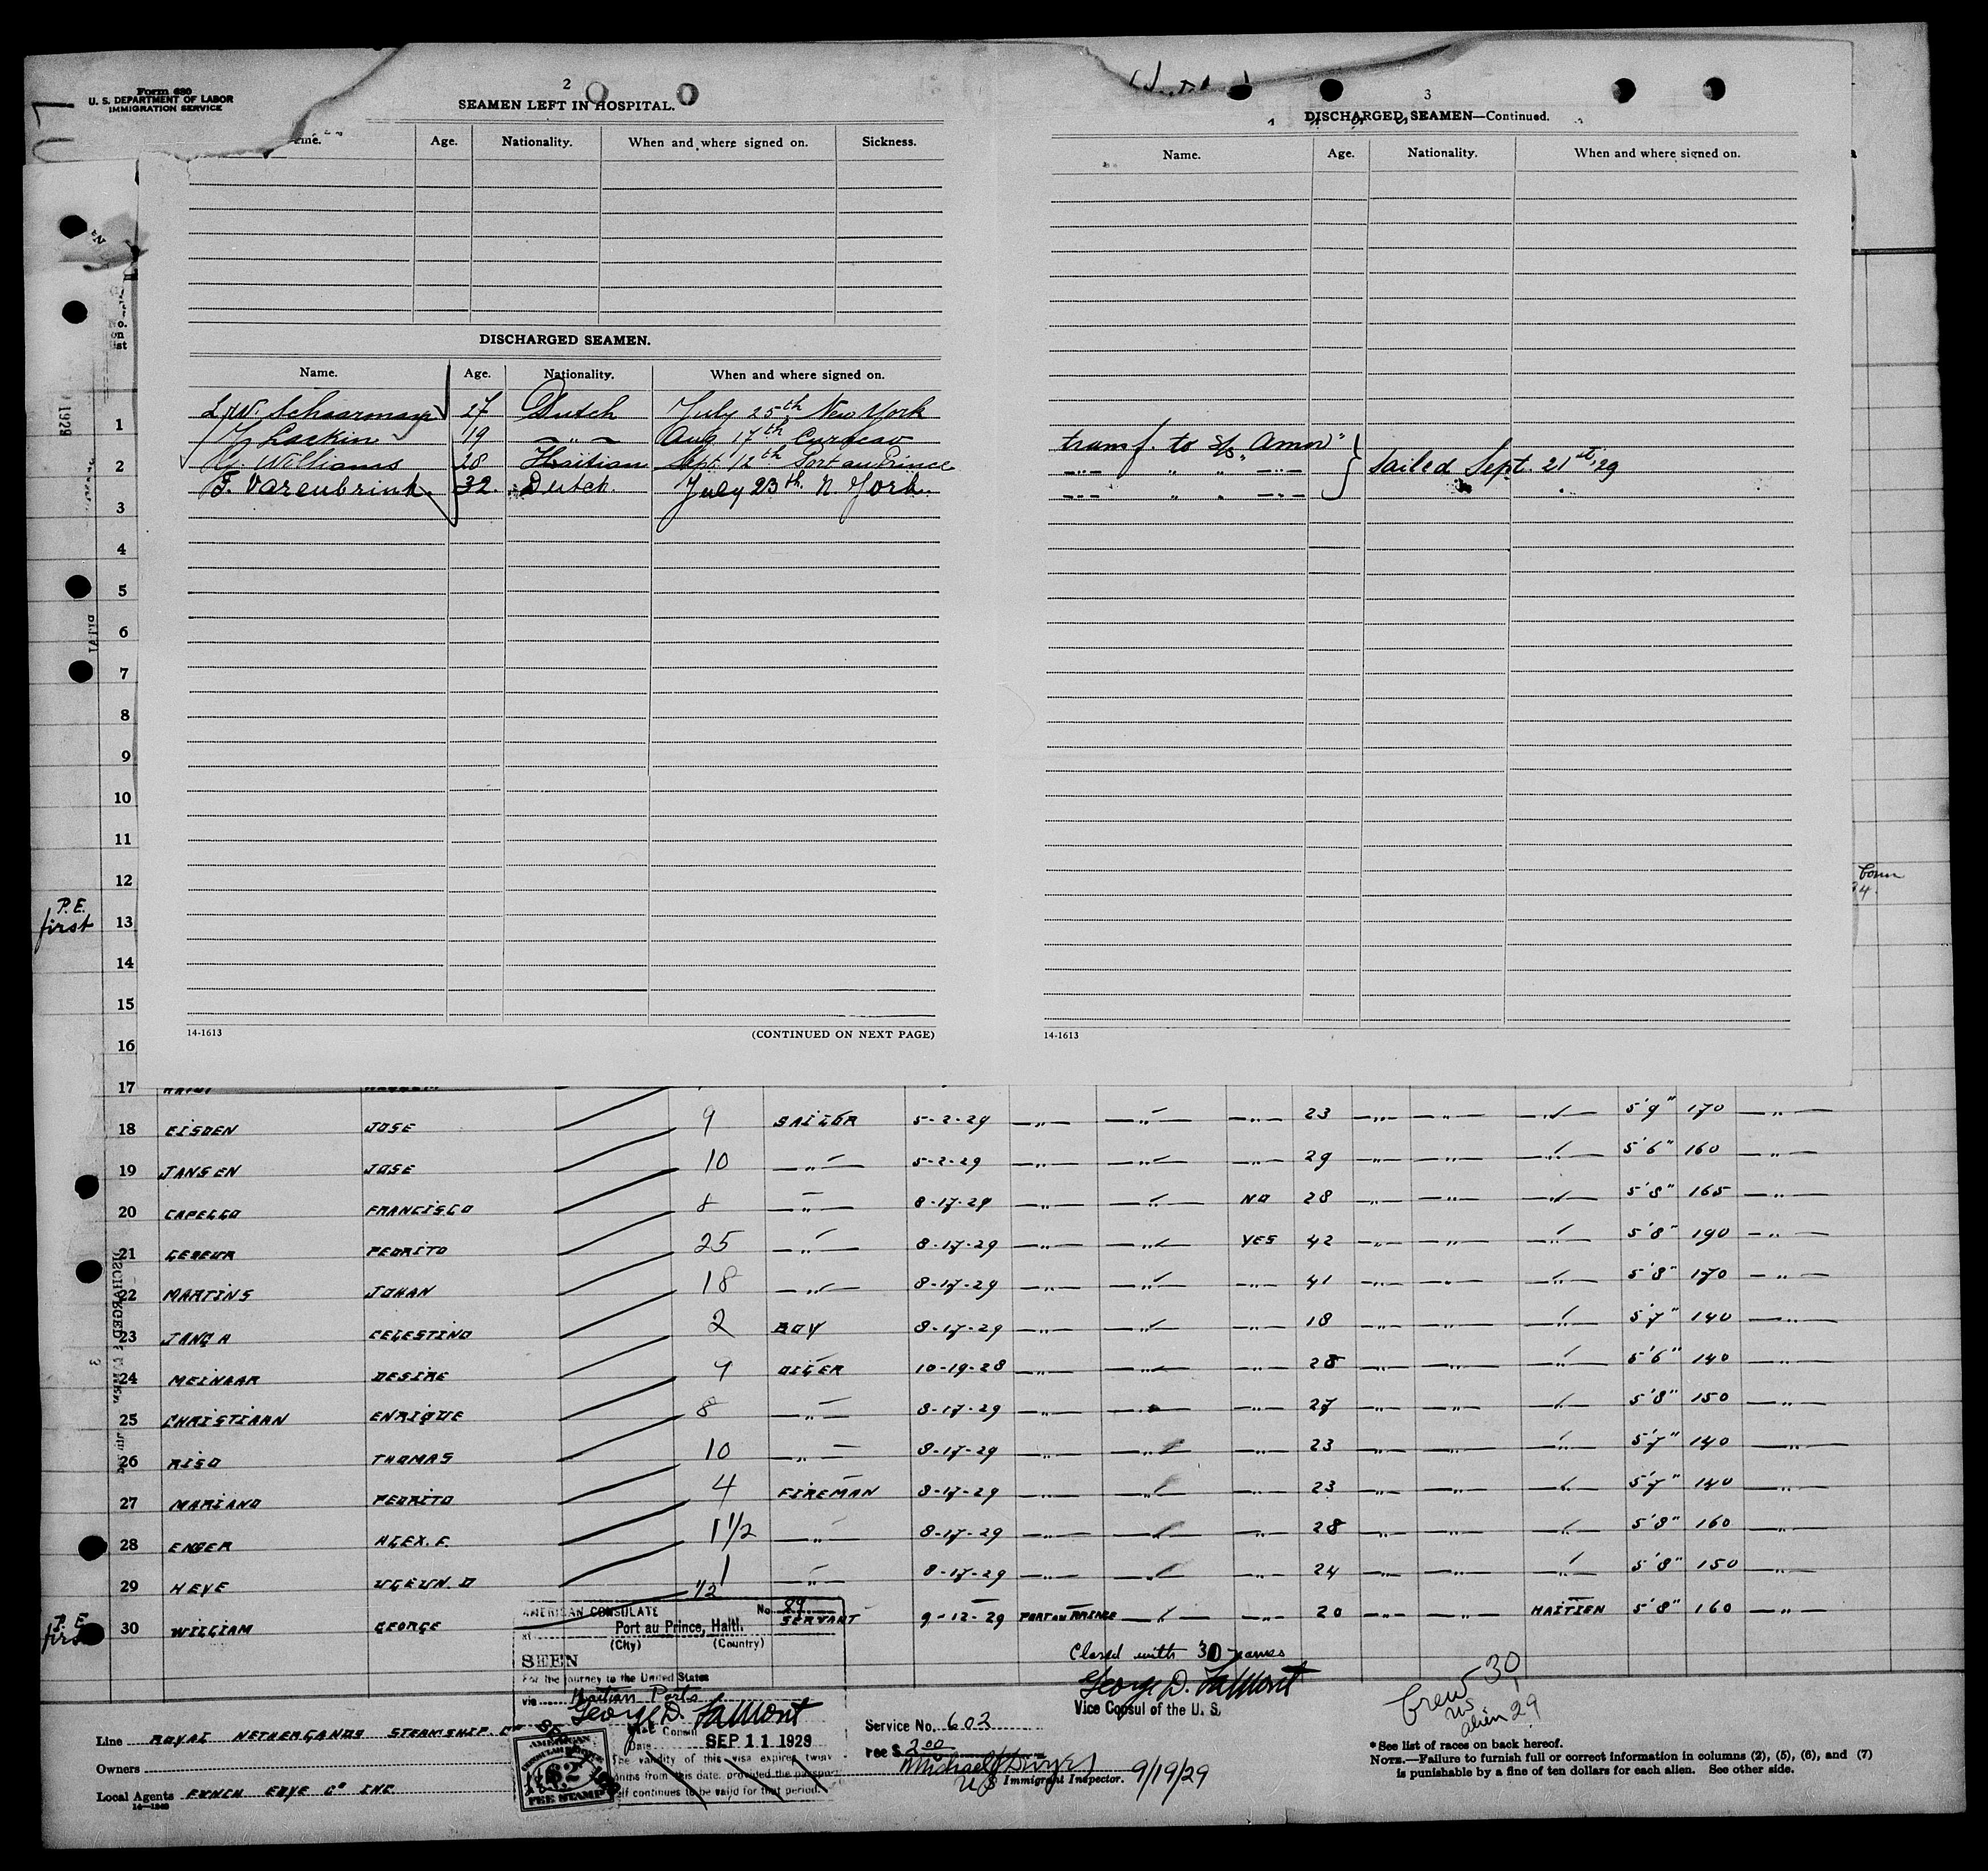 Form 680
U. S. DEPARTMENT OF LABOR
IMMIGRATION SERVICE
2
SEAMEN LEFT IN HOSPITAL.
Age. Nationality. When and where signed on. Sickness.
DISCHARGED SEAMEN.
Name. Age. Nationality. When and where signed on.
Schaarman 27 Dutch July 25th New York
Larkin 19 — " — Aug 17th Curaçao
G. Williams 28 Haitian Sept. 12th Port au Prince
F. Varenbrink. 32. Dutch. July 23th N. York.
14-1613 (CONTINUED ON NEXT PAGE)
3
DISCHARGED SEAMEN—Continued.
Name. Age. Nationality. When and where signed on.
transf. to s/s. Amor"
—"— " " —"— } sailed Sept. 21st '29
—"— " " —"—
14-1613
1929
1
2
3
4
5
6
7
8
9
10
11
12
P.E.
first 13
14
15
16
17
18 EISDEN JOSE 9 SAILOR 5-2-29 —"— —"— —"— 23 —"— —"— —"— 5'9" 170 —"—
19 JANSEN JOSE 10 —"— 5-2-29 —"— —"— —"— 29 —"— —"— —"— 5'6" 160 —"—
20 CAPELLO FRANCISCO 8 —"— 8-17-29 —"— —"— NO 28 —"— —"— —"— 5'8" 165 —"—
21 LEREUR PEDRITO 25 —"— 8-17-29 —"— —"— YES 42 —"— —"— —"— 5'8" 190 —"—
22 MARTINS JOHAN 18 —"— 8-17-29 —"— —"— —"— 41 —"— —"— —"— 5'8" 170 —"—
23 JANGA CELESTINO 2 BOY 8-17-29 —"— —"— —"— 18 —"— —"— —"— 5'7" 140 —"—
24 MEINAAR DESIRE 9 OILER 10-19-28 —"— —"— —"— 28 —"— —"— —"— 5'6" 140 —"—
25 CHRISTIAAN ENRIQUE 8 —"— 8-17-29 —"— —"— —"— 27 —"— —"— —"— 5'8" 150 —"—
26 RISO THOMAS 10 —"— 8-17-29 —"— —"— —"— 23 —"— —"— —"— 5'7" 140 —"—
27 MARIANO PEDRITO 4 FIREMAN 8-17-29 —"— —"— —"— 23 —"— —"— —"— 5'7" 140 —"—
28 ENSER ALEX. E. 1 1/2 —"— 8-17-29 —"— —"— —"— 28 —"— —"— —"— 5'8" 160 —"—
29 HEYE 1 —"— 8-17-29 —"— —"— —"— 24 —"— —"— —"— 5'8" 150 —"—
P.E.
first 30 WILLIAM GEORGE 1/2 SERVANT 9-12-29 PORT AU PRINCE —"— —"— 20 —"— —"— HAITIEN 5'8" 160 —"—
AMERICAN CONSULATE No. 89
at Port au Prince, Haiti.
(City) (Country)
SEEN
For the journey to the United States
via Haitian Ports
George D. LaMont
Vice Consul
Date SEP 11 1929
The validity of this visa expires twelve
months from this date, provided the passport
itself continues to be valid for that period.
AMERICAN
FEE STAMP
Closed with 30 names
George D. LaMont
Vice Consul of the U. S.
Service No. 602
Fee $ 2 00
Michael J Dwyer
US Immigrant Inspector. 9/19/29
Crew 30
US 1
alien 29
Line ROYAL NETHERLANDS STEAMSHIP. Co
Owners
Local Agents FUNCH EDYE Co INC
14—1240
*See list of races on back hereof.
NOTE.—Failure to furnish full or correct information in columns (2), (5), (6), and (7)
is punishable by a fine of ten dollars for each alien. See other side.